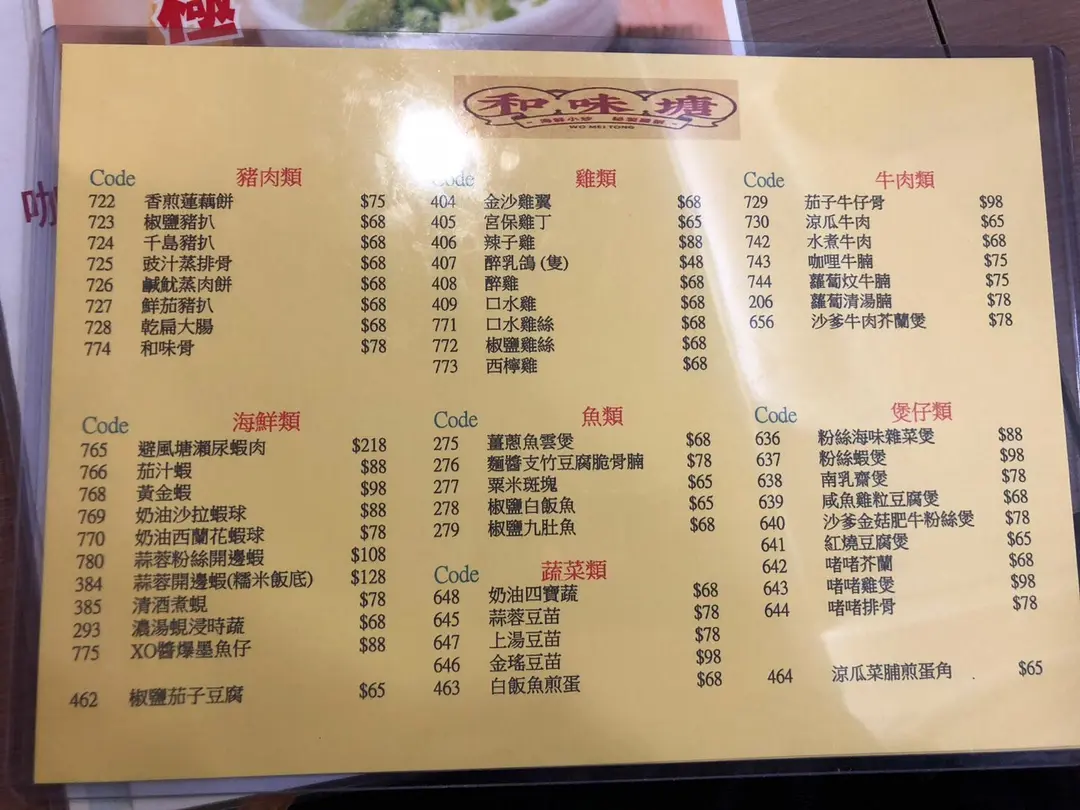 極
和味塘
WO MEI TONG
Code 豬肉類
722 香煎蓮藕餅 $75
723 椒鹽豬扒 $68
724 千島豬扒 $68
725 豉汁蒸排骨 $68
726 鹹魷蒸肉餅 $68
727 鮮茄豬扒 $68
728 乾扁大腸 $68
774 和味骨 $78
Code 雞類
404 金沙雞翼 $68
405 宮保雞丁 $65
406 辣子雞 $88
407 醉乳鴿 (隻) $48
408 醉雞 $68
409 口水雞 $68
771 口水雞絲 $68
772 椒鹽雞絲 $68
773 西檸雞 $68
Code 牛肉類
729 茄子牛仔骨 $98
730 涼瓜牛肉 $65
742 水煮牛肉 $68
743 咖哩牛腩 $75
744 蘿蔔炆牛腩 $75
206 蘿蔔清湯腩 $78
656 沙爹牛肉芥蘭煲 $78
Code 海鮮類
765 避風塘瀨尿蝦肉 $218
766 茄汁蝦 $88
768 黃金蝦 $98
769 奶油沙拉蝦球 $88
770 奶油西蘭花蝦球 $78
780 蒜蓉粉絲開邊蝦 $108
384 蒜蓉開邊蝦(糯米飯底) $128
385 清酒煮蜆 $78
293 濃湯蜆浸時蔬 $68
775 XO醬爆墨魚仔 $88
462 椒鹽茄子豆腐 $65
Code 魚類
275 薑蔥魚雲煲 $68
276 麵醬支竹豆腐脆骨腩 $78
277 粟米斑塊 $65
278 椒鹽白飯魚 $65
279 椒鹽九肚魚 $68
Code 蔬菜類
648 奶油四寶蔬 $68
645 蒜蓉豆苗 $78
647 上湯豆苗 $78
646 金瑤豆苗 $98
463 白飯魚煎蛋 $68
Code 煲仔類
636 粉絲海味雜菜煲 $88
637 粉絲蝦煲 $98
638 南乳齋煲 $78
639 咸魚雞粒豆腐煲 $68
640 沙爹金菇肥牛粉絲煲 $78
641 紅燒豆腐煲 $65
642 啫啫芥蘭 $68
643 啫啫雞煲 $98
644 啫啫排骨 $78
464 涼瓜菜脯煎蛋角 $65